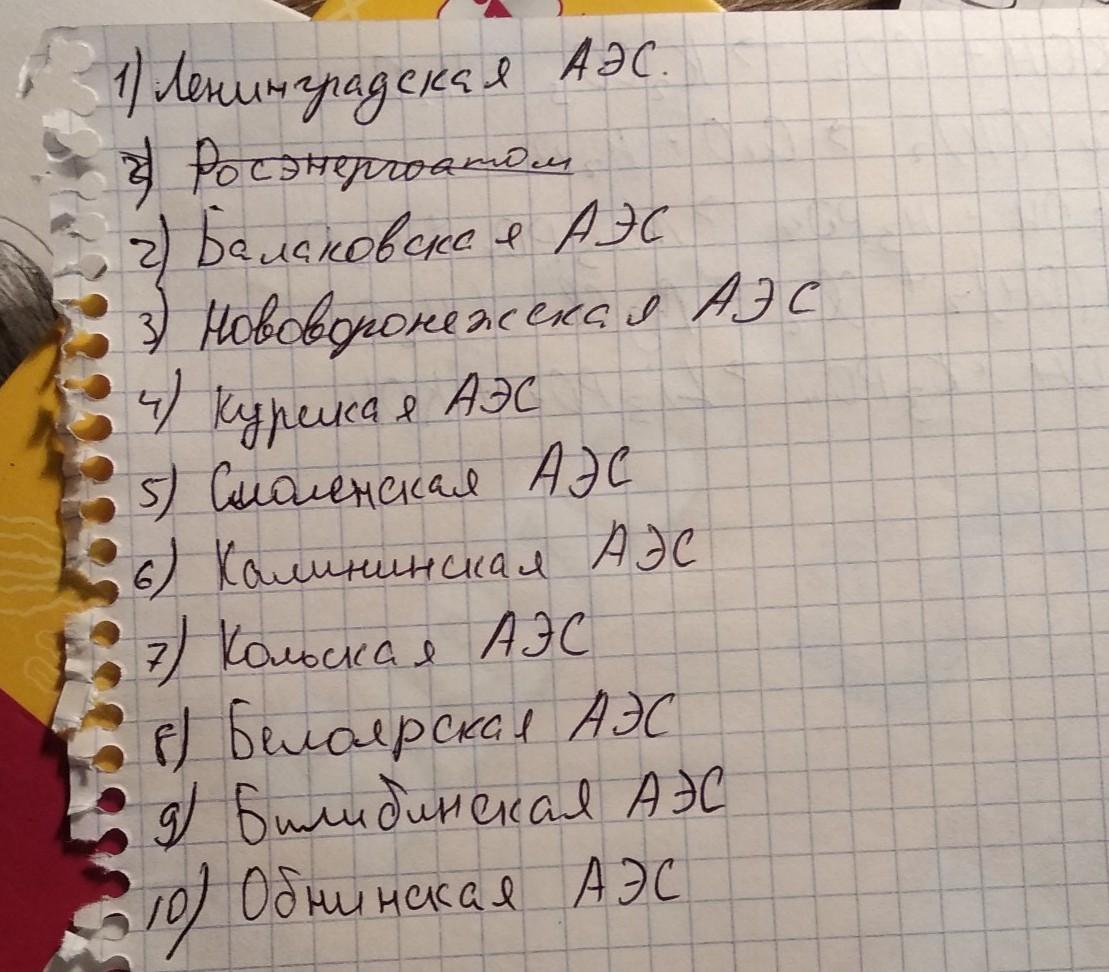 1) Ленинградская АЭС.
2) Росэнергоатом
2) Балаковская АЭС
3) Нововоронежская АЭС
4) Курская АЭС
5) Смоленская АЭС
6) Калининская АЭС
7) Кольская АЭС
8) Белоярская АЭС
9) Билибинская АЭС
10) Обнинская АЭС